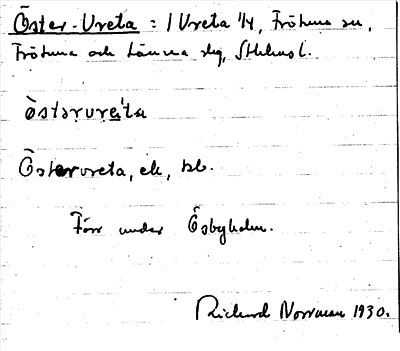 Öster-Vreta : 1 Vreta 1/4, Frötuna sn,
Frötuna och Länna slg, Sthlms l.
östərvre`ta
Östervreta, ek, bb.
Förr under Ösbyholm.
Richard Norrman 1930.